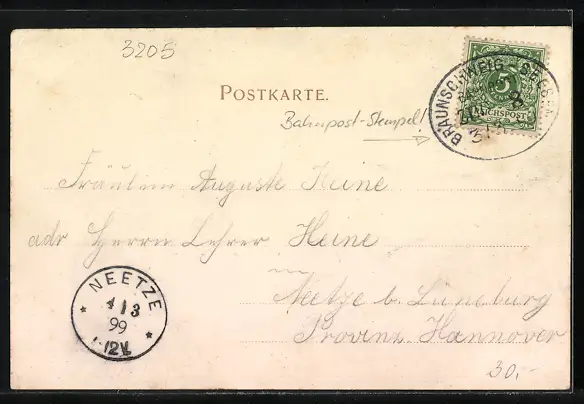 3205
POSTKARTE.
Bahnpost-Stempel!
BRAUNSCHWEIG
5
REICHSPOST
Fräulein Auguste Heine
adr Herrn Lehrer Heine
in
Neetze b. Lüneburg
Provinz Hannover
NEETZE
1/3
99
30.-